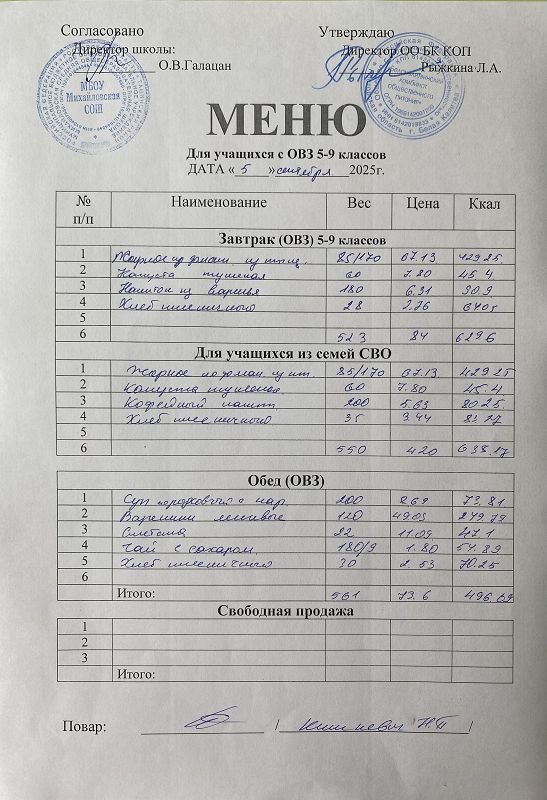 Согласовано Утверждаю
Директор школы: Директор ОО БК КОП
О.В.Галацан Рыжкина Л.А.
МБОУ
Михайловская
СОШ
комбинат
общественного
питания
МЕНЮ
Для учащихся с ОВЗ 5-9 классов
ДАТА « 5 » сентября 2025г.
№ п/п Наименование Вес Цена Ккал
Завтрак (ОВЗ) 5-9 классов
1 Жаркое по 85/170 67.13 429.25
2 Капуста тушеная 60 7.80 45.4
3 Напиток из варенья 180 6.31
4 Хлеб пшеничного 28 2.76
5
6 523 84 629.6
Для учащихся из семей СВО
1 Жаркое по 85/170 67.13 429.25
2 Капуста тушеная 60 7.80 45.4
3 Кофейный 200 5.63 80.25
4 Хлеб пшеничного 35 3.44
5
6 550 638.17
Обед (ОВЗ)
1 Суп гороховый 200 73.81
2 Вареники ленивые 120 49.05 249.79
3 Сметана 22 11.09 47.1
4 Чай с сахаром 180/9 1.80 54.89
5 Хлеб пшеничного 30 2.53 70.25
6
Итого: 561 73.6 496.69
Свободная продажа
1
2
3
Итого:
Повар: / Н.П /